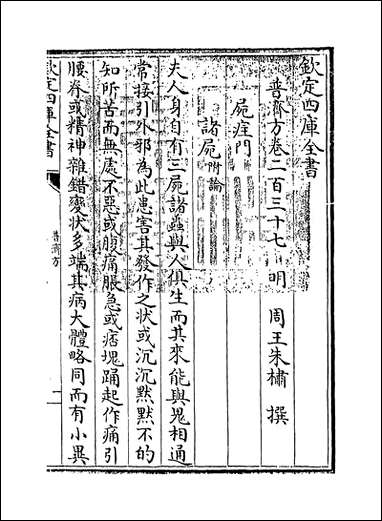 欽定四庫全書
普濟方卷二百三十七　明　周王朱橚　撰
屍疰門
諸屍附論
夫人身自有三屍諸蟲與人俱生而其來能與鬼相通
常接引外邪為此患害其發作之狀或沉沉默默不的
知所苦而無處不惡或腹痛脹急或痞塊踊起作痛引
腰脊或精神雜錯變狀多端其病大體略同而有小異
欽定四庫全書
普濟方
一